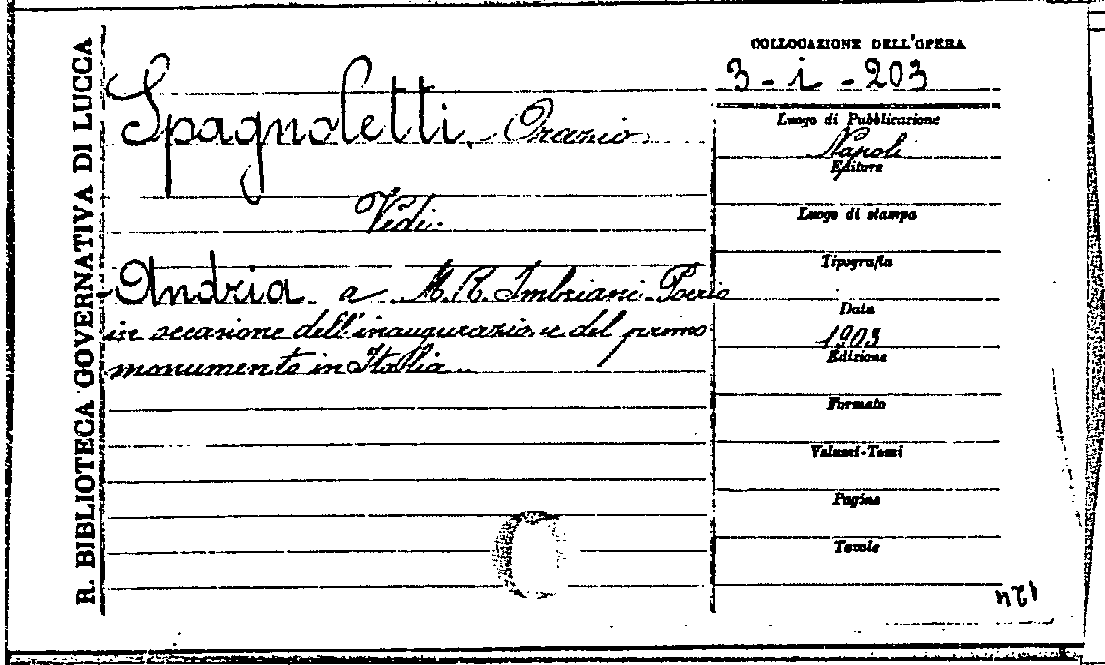 R. BIBLIOTECA GOVERNATIVA DI LUCCA
COLLOCAZIONE DELL'OPERA
3 - i - 203
Spagnoletti, Orazio
Vedi
Andria a M. R. Imbriani Poerio
in occasione dell'inaugurazione del primo
monumento in Italia
Luogo di Pubblicazione
Napoli
Editore
Luogo di stampa
Tipografia
Data
1903
Edizione
Formato
Volumi-Tomi
Pagine
Tavole
124